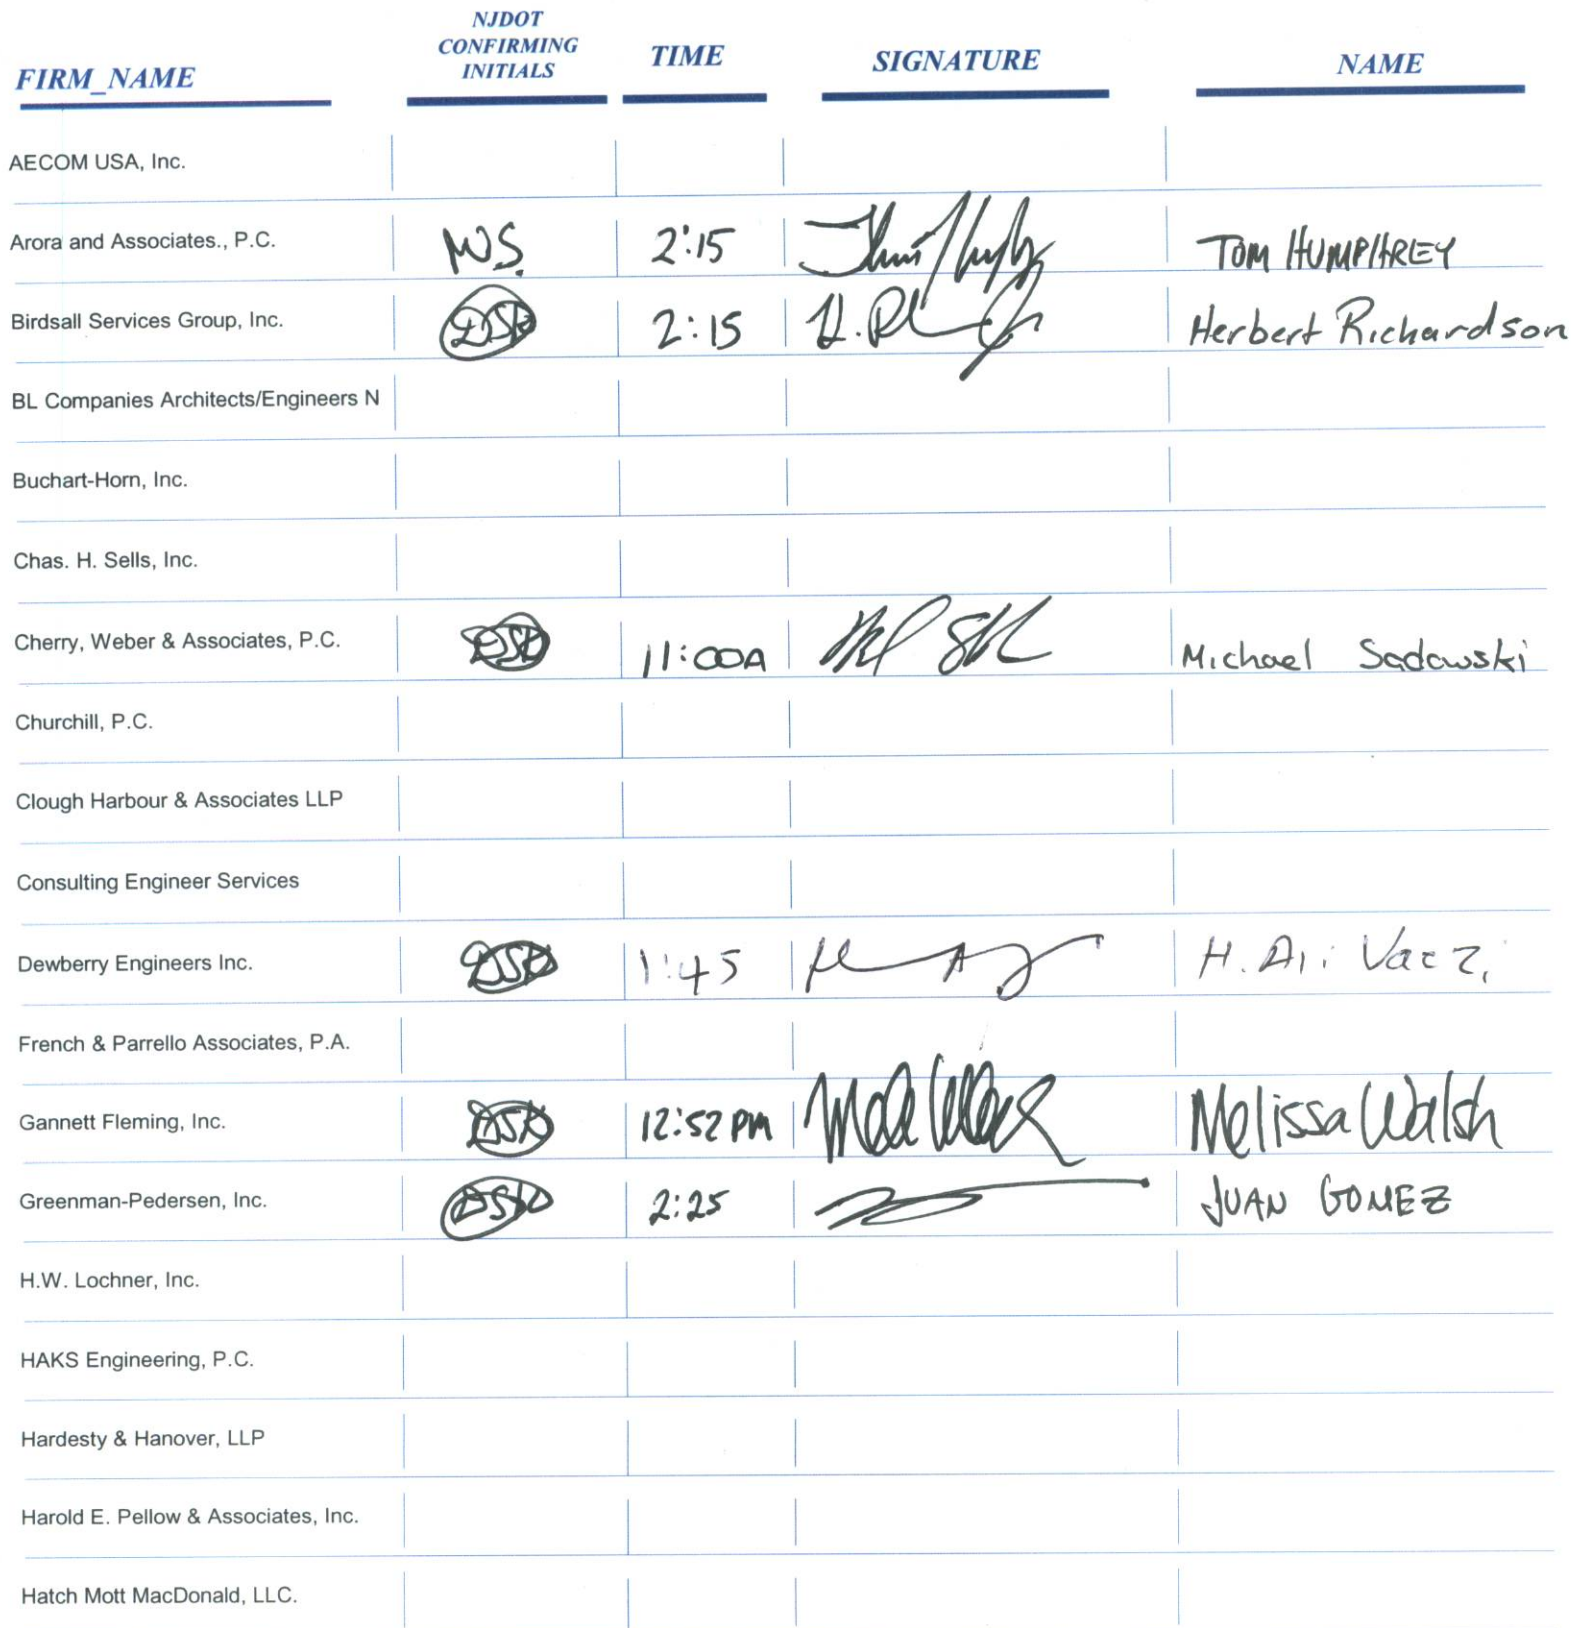 NJDOT
CONFIRMING
INITIALS
FIRM_NAME TIME SIGNATURE NAME
AECOM USA, Inc.
Arora and Associates., P.C. 2:15 TOM HUMPHREY
Birdsall Services Group, Inc. 2:15 Herbert Richardson
BL Companies Architects/Engineers N
Buchart-Horn, Inc.
Chas. H. Sells, Inc.
Cherry, Weber & Associates, P.C. 11:00A Michael Sadowski
Churchill, P.C.
Clough Harbour & Associates LLP
Consulting Engineer Services
Dewberry Engineers Inc. 1:45 H. Ali Vaezi
French & Parrello Associates, P.A.
Gannett Fleming, Inc. 12:52 PM Melissa Walsh
Greenman-Pedersen, Inc. 2:25 JUAN GOMEZ
H.W. Lochner, Inc.
HAKS Engineering, P.C.
Hardesty & Hanover, LLP
Harold E. Pellow & Associates, Inc.
Hatch Mott MacDonald, LLC.